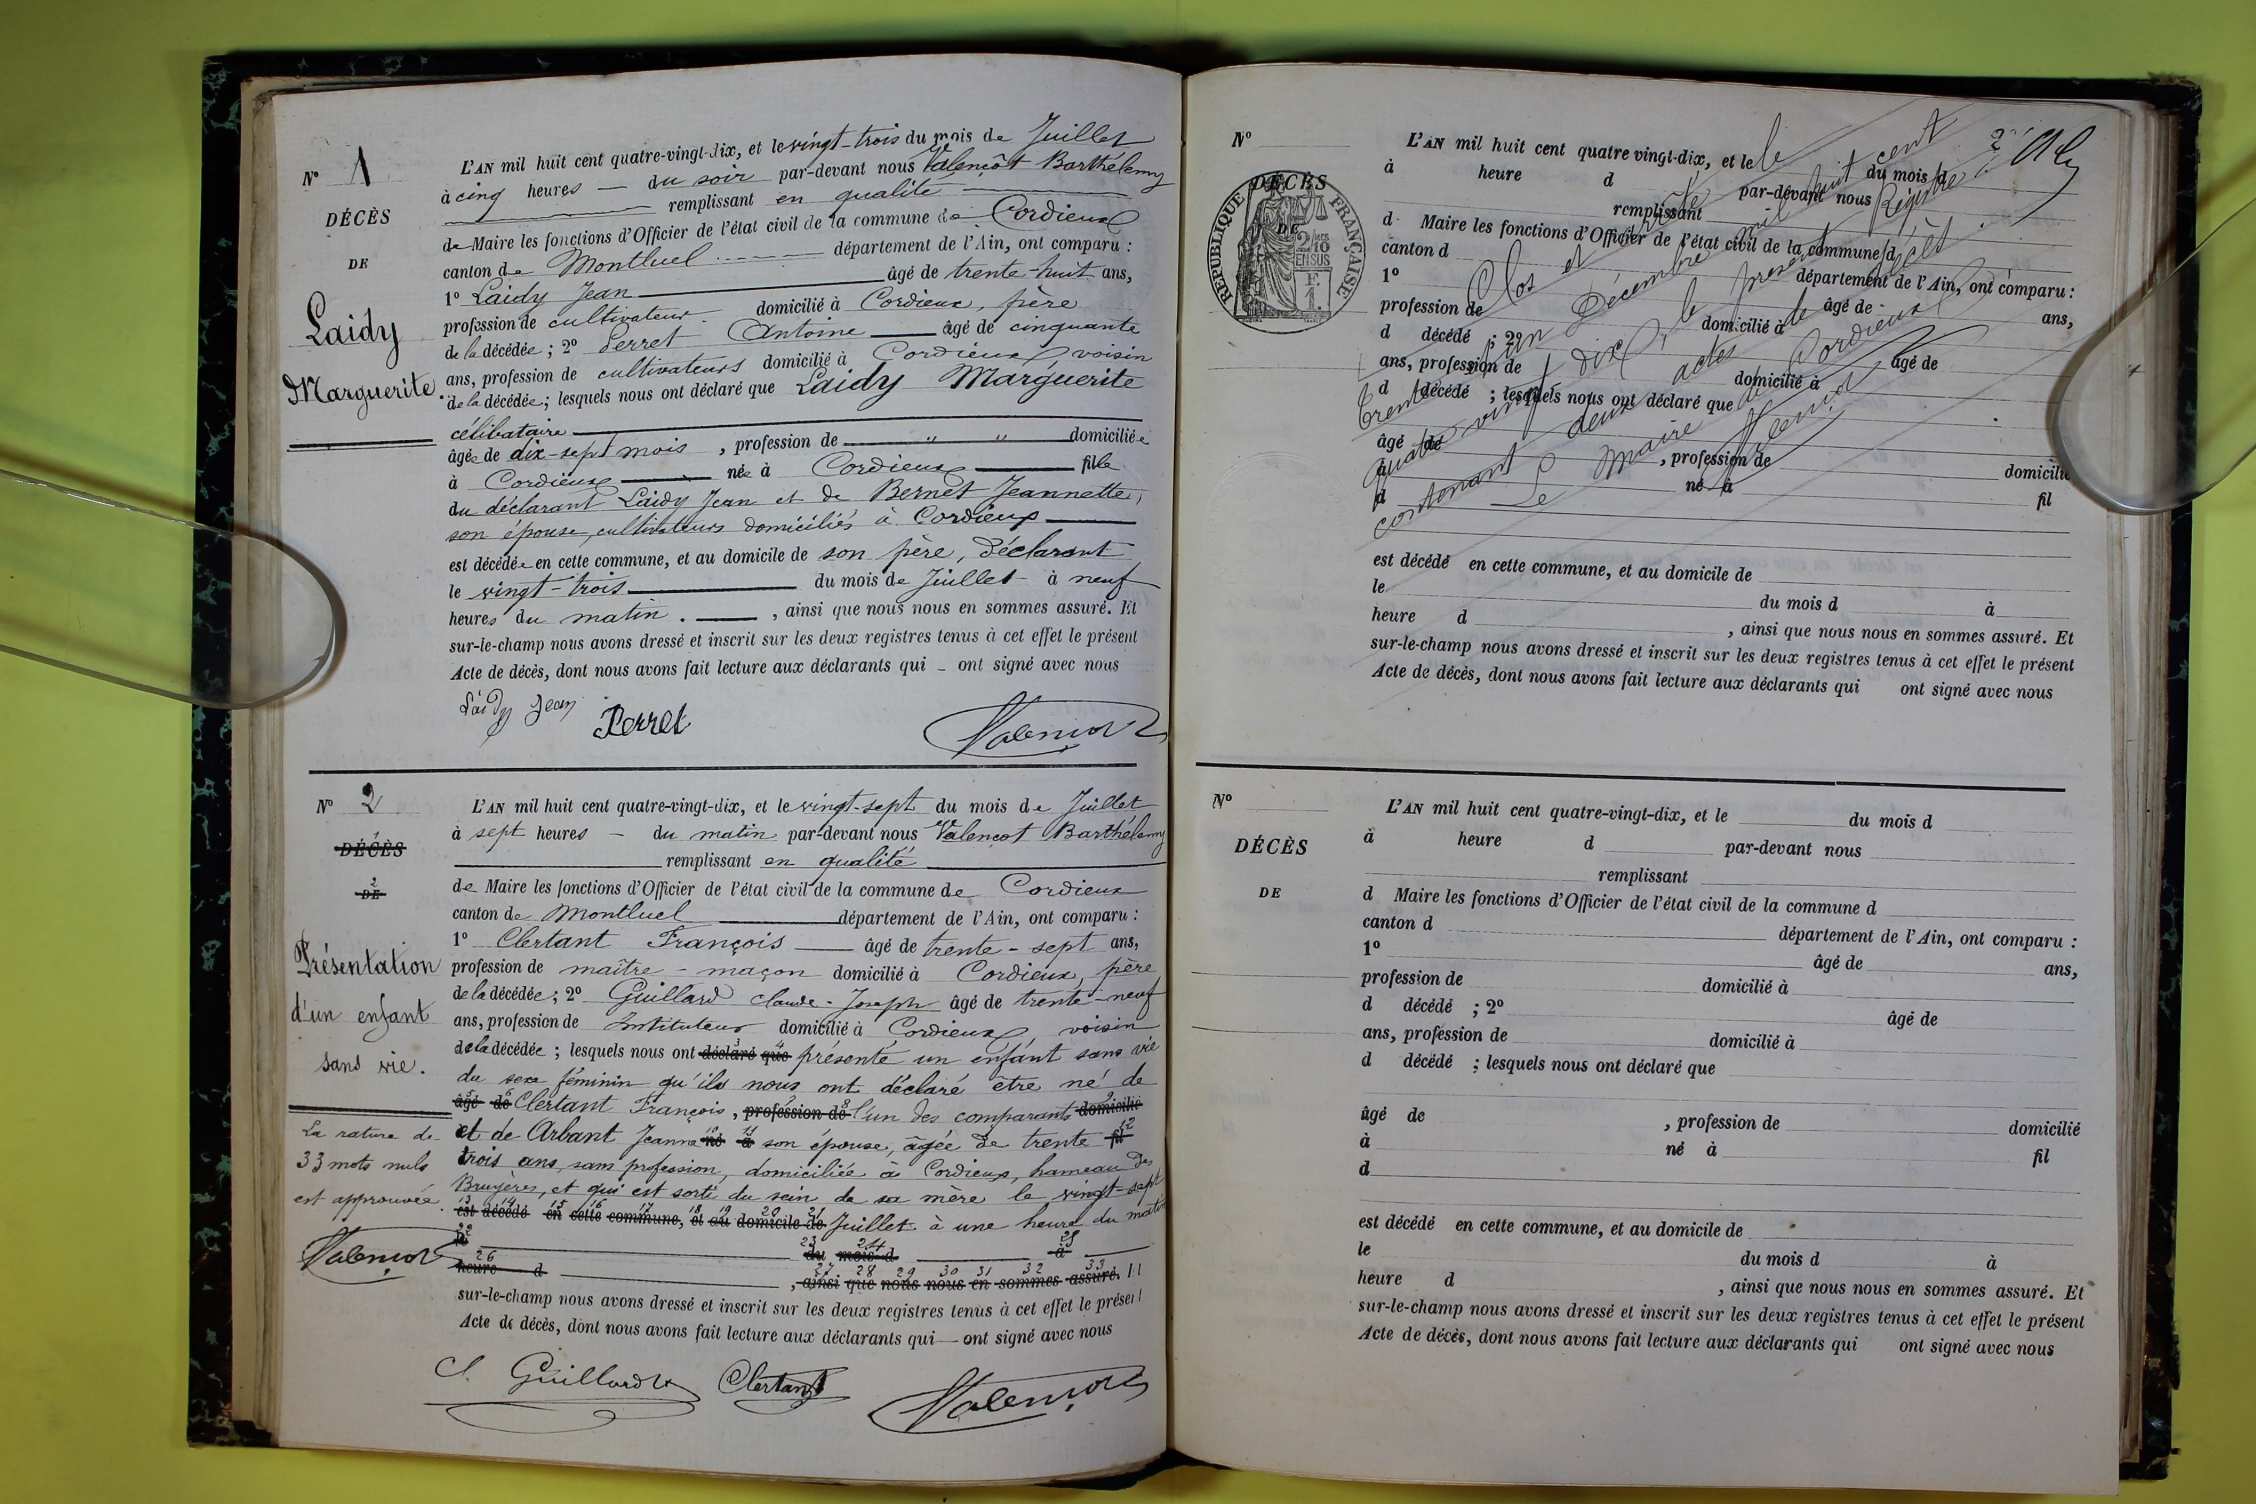 N° 1
DÉCÈS
DE
Laidy
Marguerite.
L'AN mil huit cent quatre-vingt-dix, et le vingt-trois du mois de Juillet
à cinq heures — du soir par-devant nous Valençôt Barthélemy
remplissant en qualité
de Maire les fonctions d'Officier de l'état civil de la commune de Cordieux
canton de Montluel département de l'Ain, ont comparu :
1° Laidy Jean âgé de trente-huit ans,
profession de cultivateur domicilié à Cordieux, père
de la décédée ; 2° Perret Antoine âgé de cinquante
ans, profession de cultivateurs domicilié à Cordieux voisin
de la décédée ; lesquels nous ont déclaré que Laidy Marguerite
célibataire
âgée de dix-sept mois , profession de " " domiciliée
à Cordieux née à Cordieux fille
du déclarant Laidy Jean et de Bernet Jeannette,
son épouse, cultivateurs domiciliés à Cordieux
est décédée en cette commune, et au domicile de son père, déclarant
le vingt-trois du mois de Juillet à neuf
heures du matin. , ainsi que nous nous en sommes assuré. Et
sur-le-champ nous avons dressé et inscrit sur les deux registres tenus à cet effet le présent
Acte de décès, dont nous avons fait lecture aux déclarants qui — ont signé avec nous
Laidy Jean Perret Valençot
N° 2
DÉCÈS
2
DE
Présentation
d'un enfant
sans vie.
La rature de
33 mots nuls
est approuvée.
Valençot
L'AN mil huit cent quatre-vingt-dix, et le vingt-sept du mois de Juillet
à sept heures — du matin par-devant nous Valençot Barthélemy
remplissant en qualité
de Maire les fonctions d'Officier de l'état civil de la commune de Cordieux
canton de Montluel département de l'Ain, ont comparu :
1° Clertant François âgé de trente-sept ans,
profession de maître-maçon domicilié à Cordieux, père
de la décédée ; 2° Guillard Claude-Joseph âgé de trente-neuf
ans, profession de Instituteur domicilié à Cordieux voisin
de la décédée ; lesquels nous ont déclaré que présenté un enfant sans vie
du sexe féminin qu'ils nous ont déclaré être né de
âgé de Clertant François, profession de l'un des comparants domicilié
et de Arbant Jeanne né à son épouse, âgée de trente fil
trois ans, sans profession, domiciliée à Cordieux, hameau des
Bruyères, et qui est sorti du sein de sa mère le vingt-sept
est décédé en cette commune, et au domicile de Juillet à une heure du matin
le du mois d à
heure d , ainsi que nous nous en sommes assuré. Et
sur-le-champ nous avons dressé et inscrit sur les deux registres tenus à cet effet le présent
Acte de décès, dont nous avons fait lecture aux déclarants qui — ont signé avec nous
Guillard Clertant Valençot
N°
DÉCÈS
DE
RÉPUBLIQUE FRANÇAISE
2/10
EN SUS
F.
1
L'AN mil huit cent quatre vingt-dix, et le
du mois d
à heure d par-devant nous
remplissant
d Maire les fonctions d'Officier de l'état civil de la commune d
canton d département de l'Ain, ont comparu :
1° âgé de ans,
profession de domicilié à
d décédé ; 2° âgé de
ans, profession de domicilié à
d décédé ; lesquels nous ont déclaré que
âgé de , profession de domicilié
à né à fil
d
est décédé en cette commune, et au domicile de
le du mois d à
heure d , ainsi que nous nous en sommes assuré. Et
sur-le-champ nous avons dressé et inscrit sur les deux registres tenus à cet effet le présent
Acte de décès, dont nous avons fait lecture aux déclarants qui ont signé avec nous
Clos et arrêté le
trente un Décembre mil huit cent
quatre vingt dix, le présent Registre
contenant deux actes de décès.
Le Maire de Cordieux
Valençot
N°
DÉCÈS
DE
L'AN mil huit cent quatre-vingt-dix, et le du mois d
à heure d par-devant nous
remplissant
d Maire les fonctions d'Officier de l'état civil de la commune d
canton d département de l'Ain, ont comparu :
1° âgé de ans,
profession de domicilié à
d décédé ; 2° âgé de
ans, profession de domicilié à
d décédé ; lesquels nous ont déclaré que
âgé de , profession de domicilié
à né à fil
d
est décédé en cette commune, et au domicile de
le du mois d à
heure d , ainsi que nous nous en sommes assuré. Et
sur-le-champ nous avons dressé et inscrit sur les deux registres tenus à cet effet le présent
Acte de décès, dont nous avons fait lecture aux déclarants qui ont signé avec nous